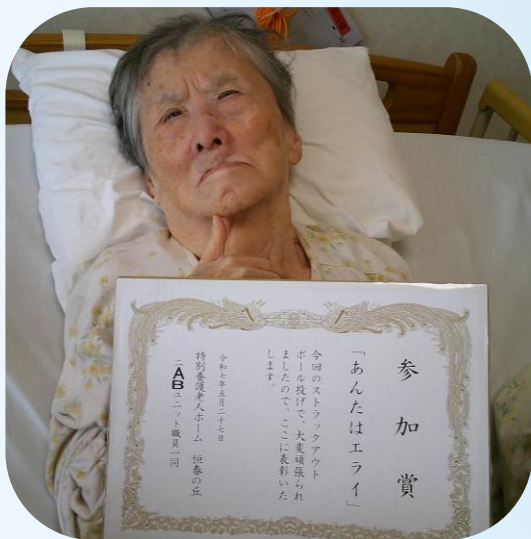 参加賞
「あんたはエライ」
今回のストラックアウト
ボール投げで、大変頑張られ
ましたので、ここに表彰いた
します。
令和七年五月二十七日
特別養護老人ホーム 恒春の丘
二ABユニット職員一同